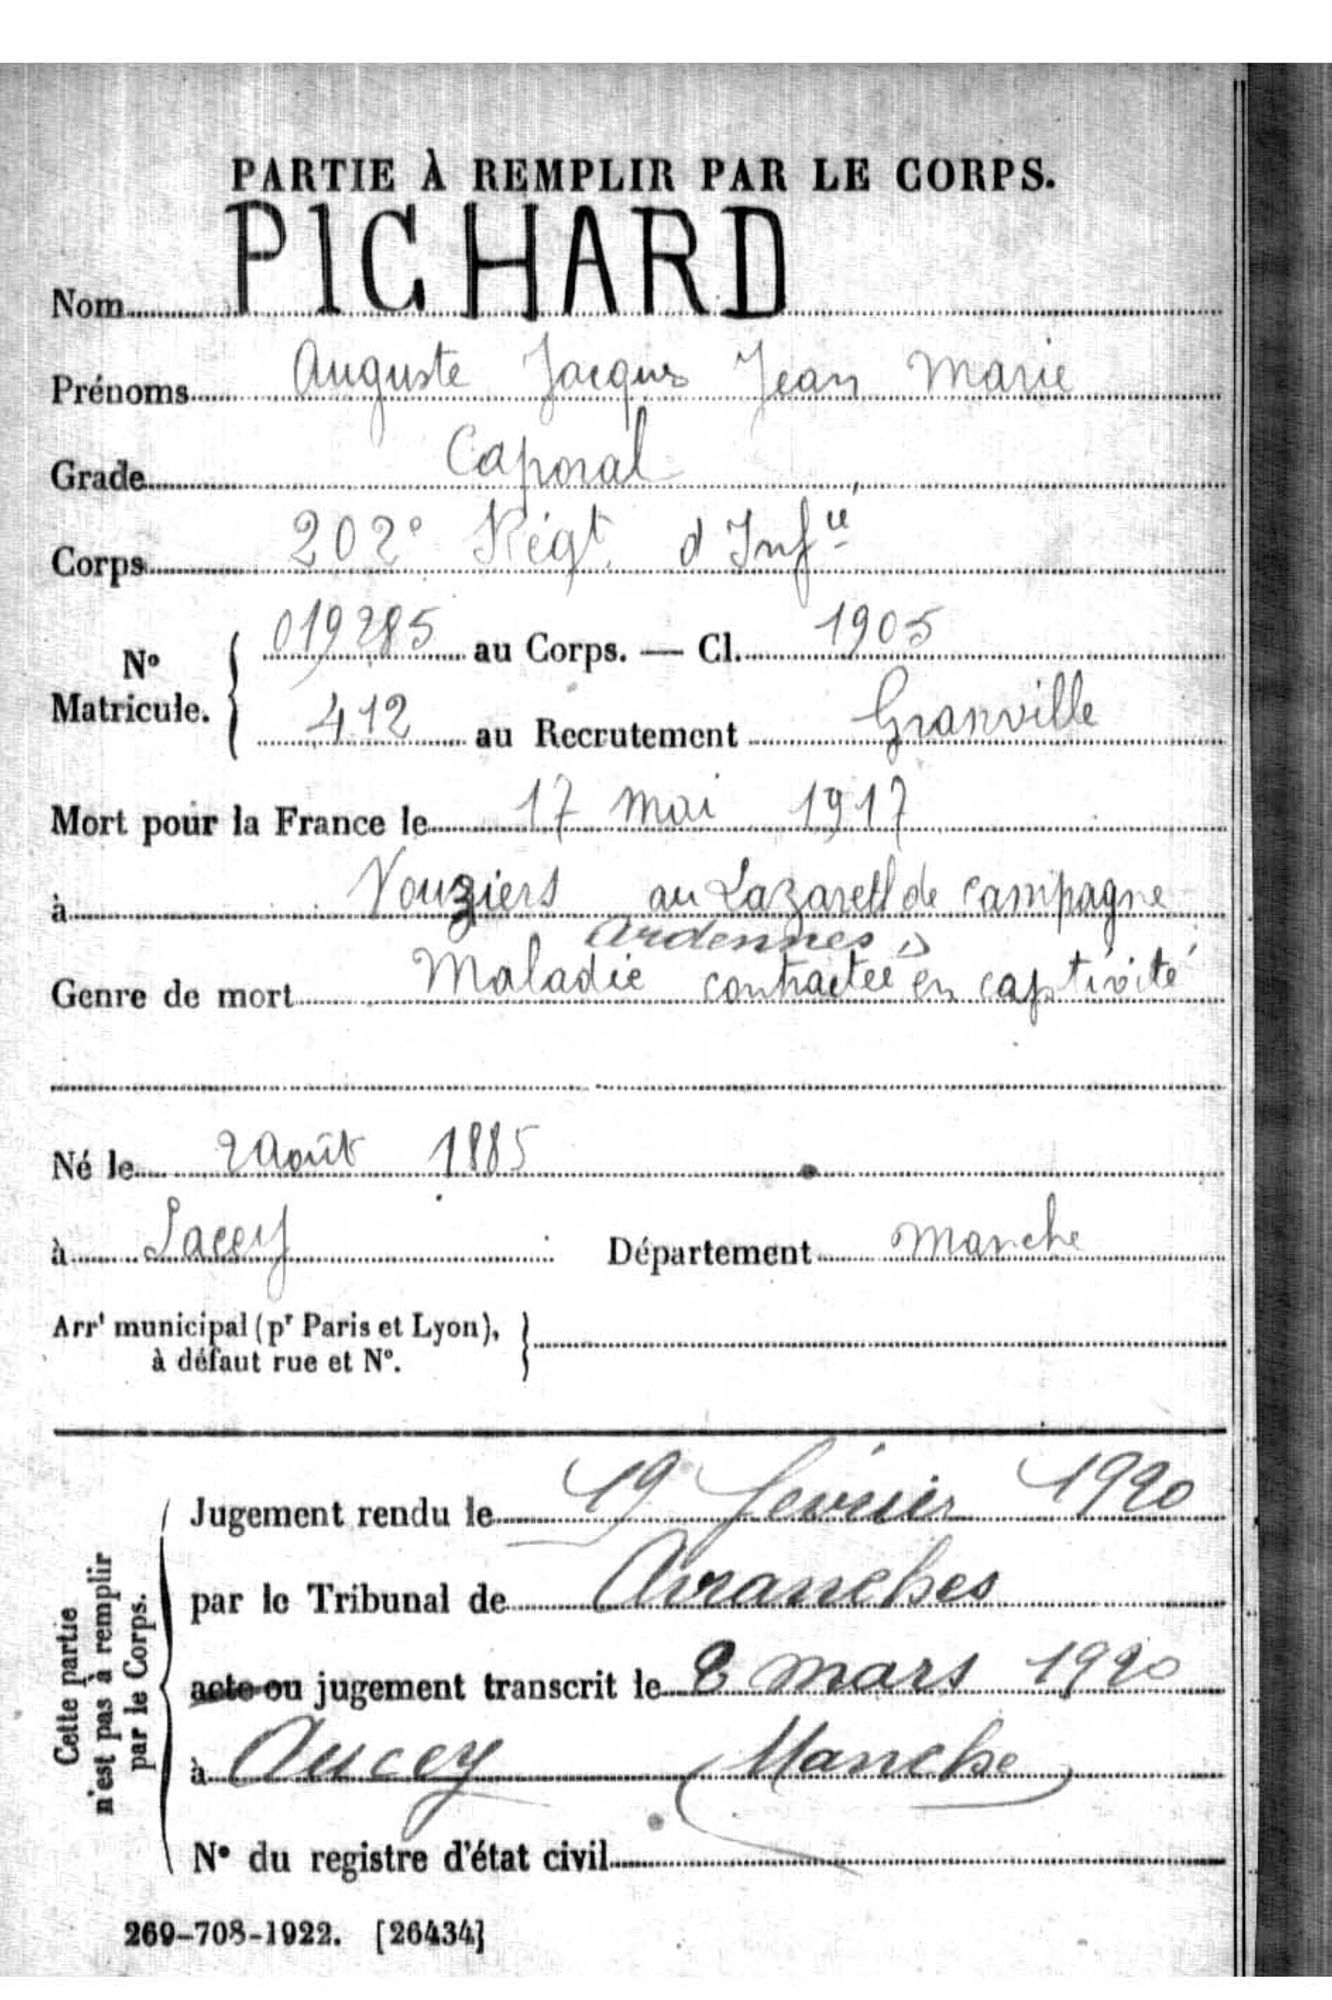 PARTIE À REMPLIR PAR LE CORPS.
Nom PICHARD
Prénoms Auguste Jacques Jean Marie
Grade Caporal
Corps 202e Régt d'Infie
No Matricule. { 019285 au Corps. — Cl. 1905
412 au Recrutement Granville
Mort pour la France le 17 mai 1917
à Vouziers au Lazarett de campagne
Ardennes
Genre de mort Maladie contractée en captivité
Né le 2 Août 1885
à Sacey Département Manche
Arrt municipal (pr Paris et Lyon),
à défaut rue et No.
Cette partie
n'est pas à remplir
par le Corps.
Jugement rendu le 19 février 1920
par le Tribunal de Avranches
acte ou jugement transcrit le 8 mars 1920
à Aucey (Manche)
No du registre d'état civil
269-708-1922. [26434]